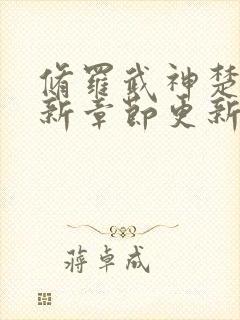 脩羅武神楚
新章節更新
蔣卓成